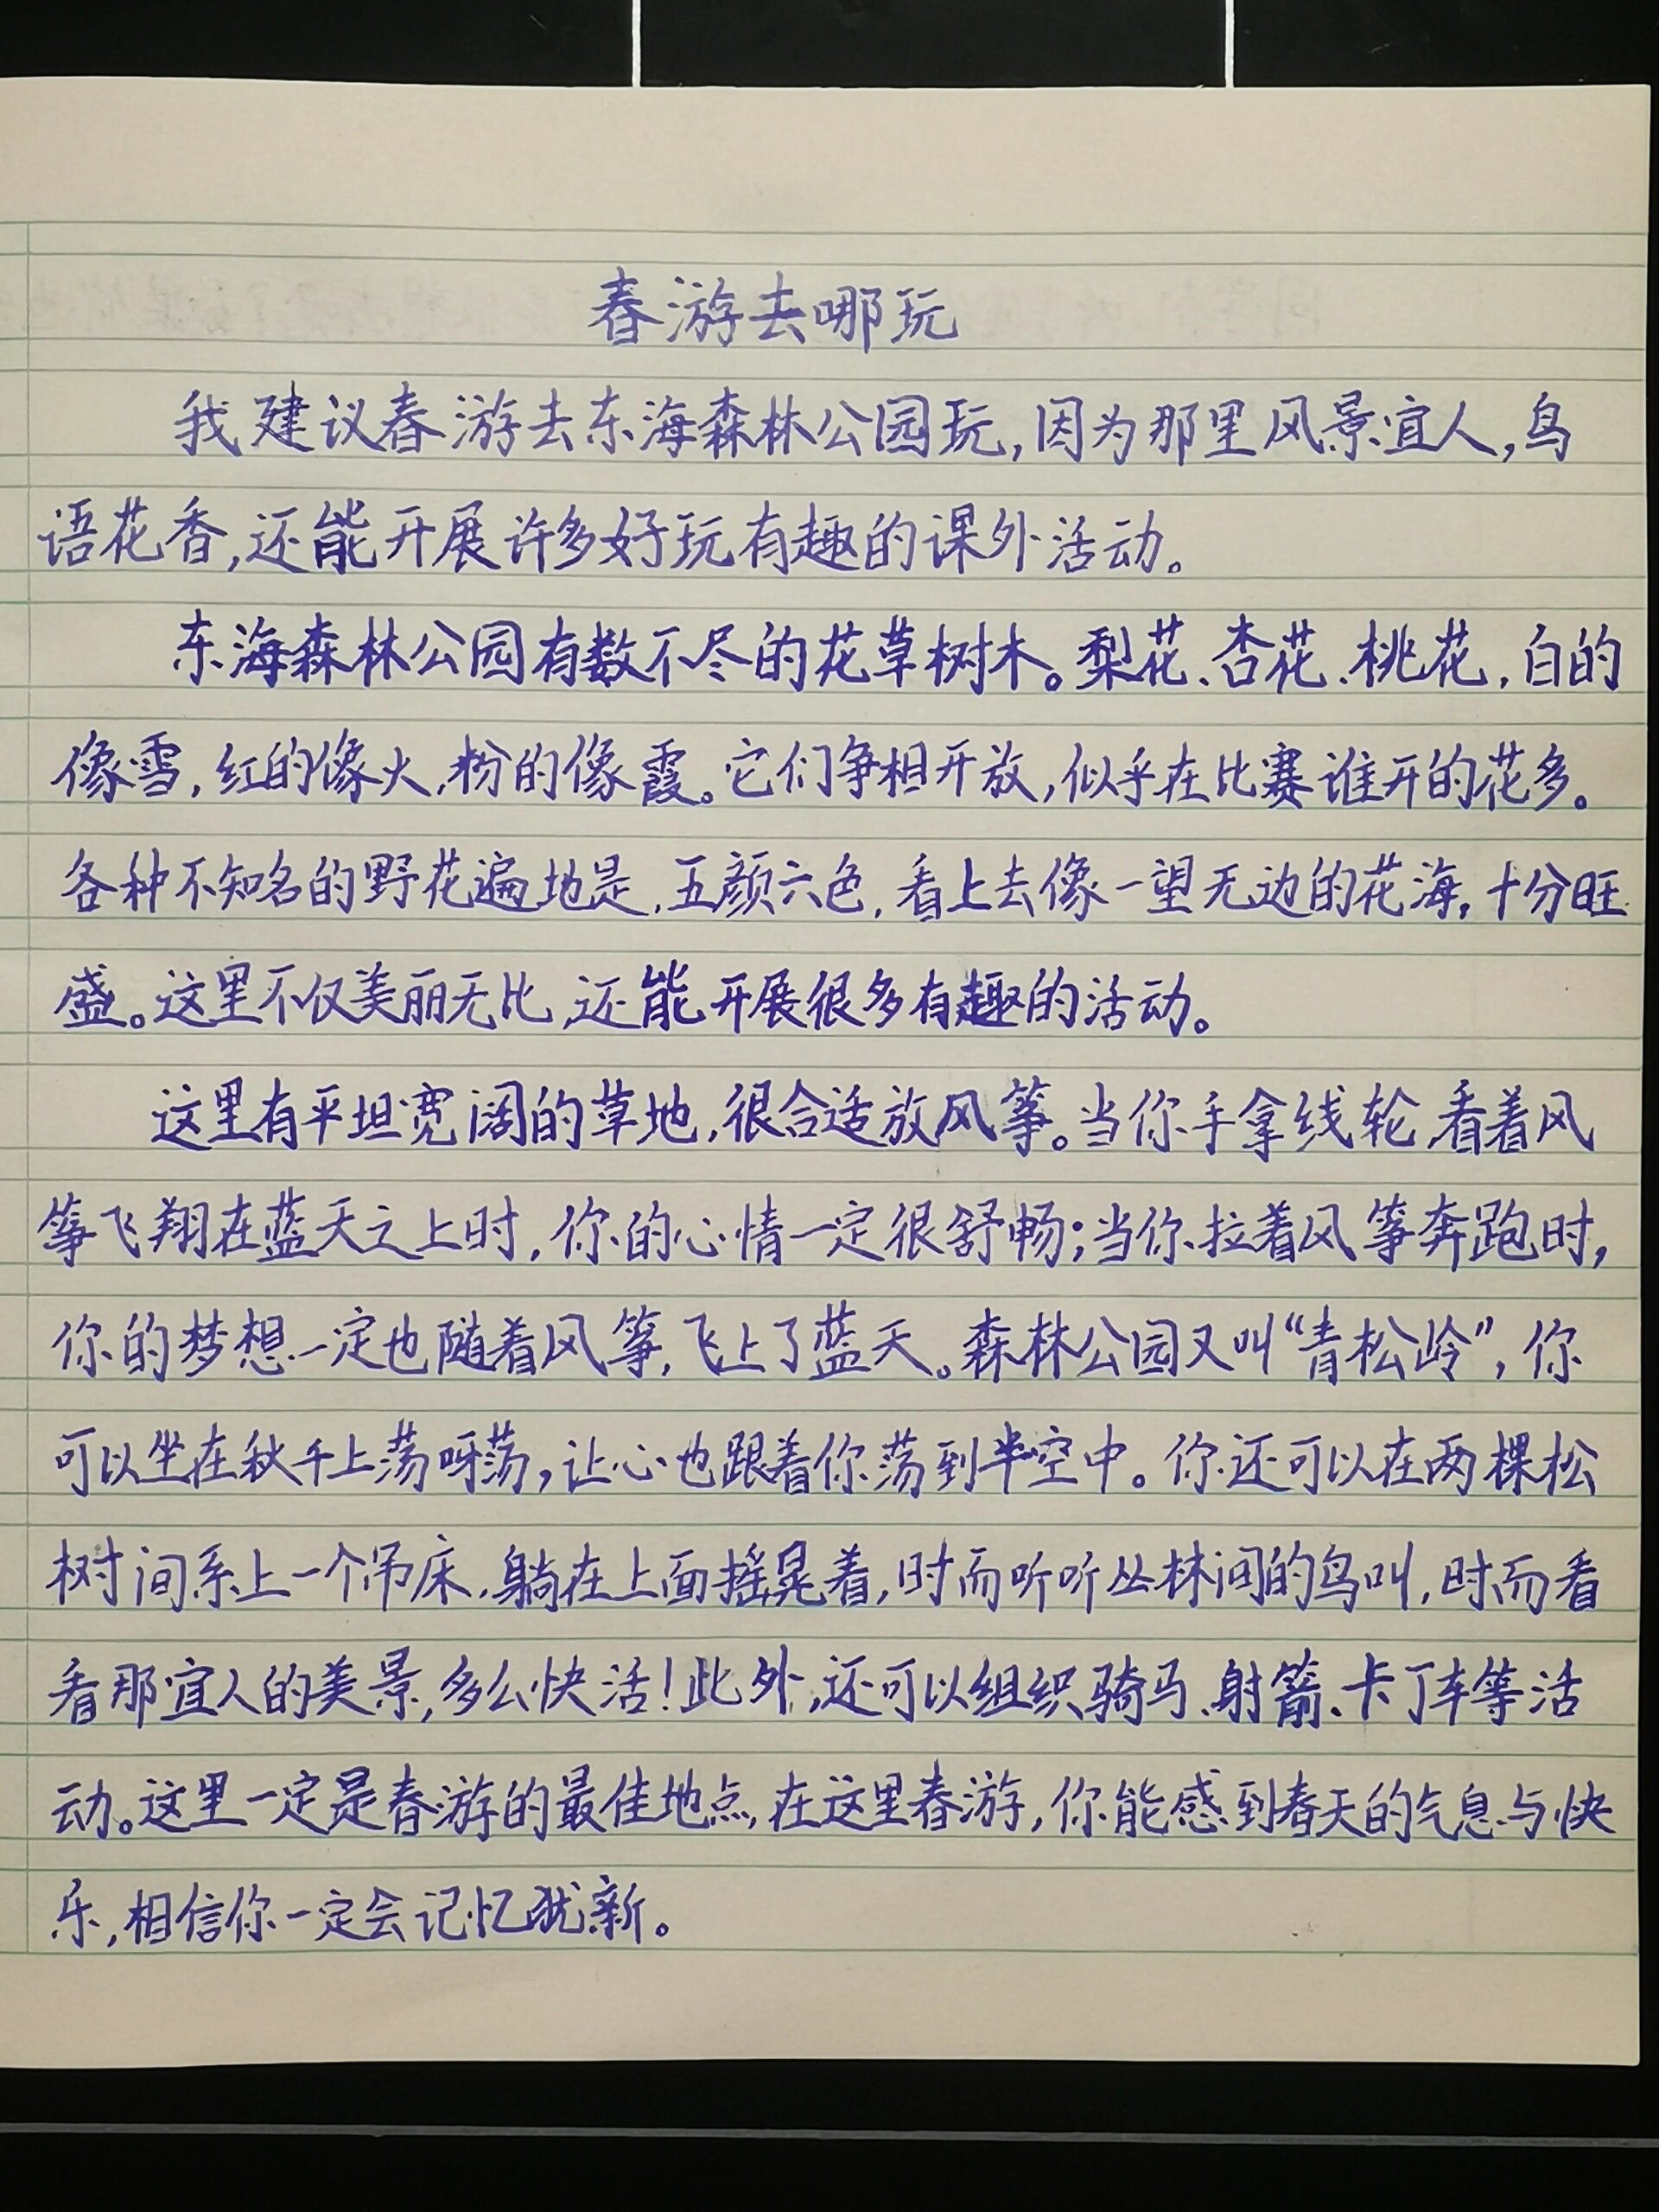 春游去哪玩
我建议春游去东海森林公园玩,因为那里风景宜人,鸟
语花香,还能开展许多好玩有趣的课外活动。
东海森林公园有数不尽的花草树木。梨花、杏花、桃花,白的
像雪,红的像火,粉的像霞。它们争相开放,似乎在比赛谁开的花多。
各种不知名的野花遍地是,五颜六色,看上去像一望无边的花海,十分旺
盛。这里不仅美丽无比,还能开展很多有趣的活动。
这里有平坦宽阔的草地,很合适放风筝。当你手拿线轮,看着风
筝飞翔在蓝天之上时,你的心情一定很舒畅;当你拉着风筝奔跑时,
你的梦想一定也随着风筝,飞上了蓝天。森林公园又叫“青松岭”,你
可以坐在秋千上荡呀荡,让心也跟着你荡到半空中。你还可以在两棵松
树间系上一个吊床,躺在上面摇晃着,时而听听丛林间的鸟叫,时而看
看那宜人的美景,多么快活!此外,还可以组织骑马、射箭、卡丁车等活
动。这里一定是春游的最佳地点,在这里春游,你能感到春天的气息与快
乐,相信你一定会记忆犹新。